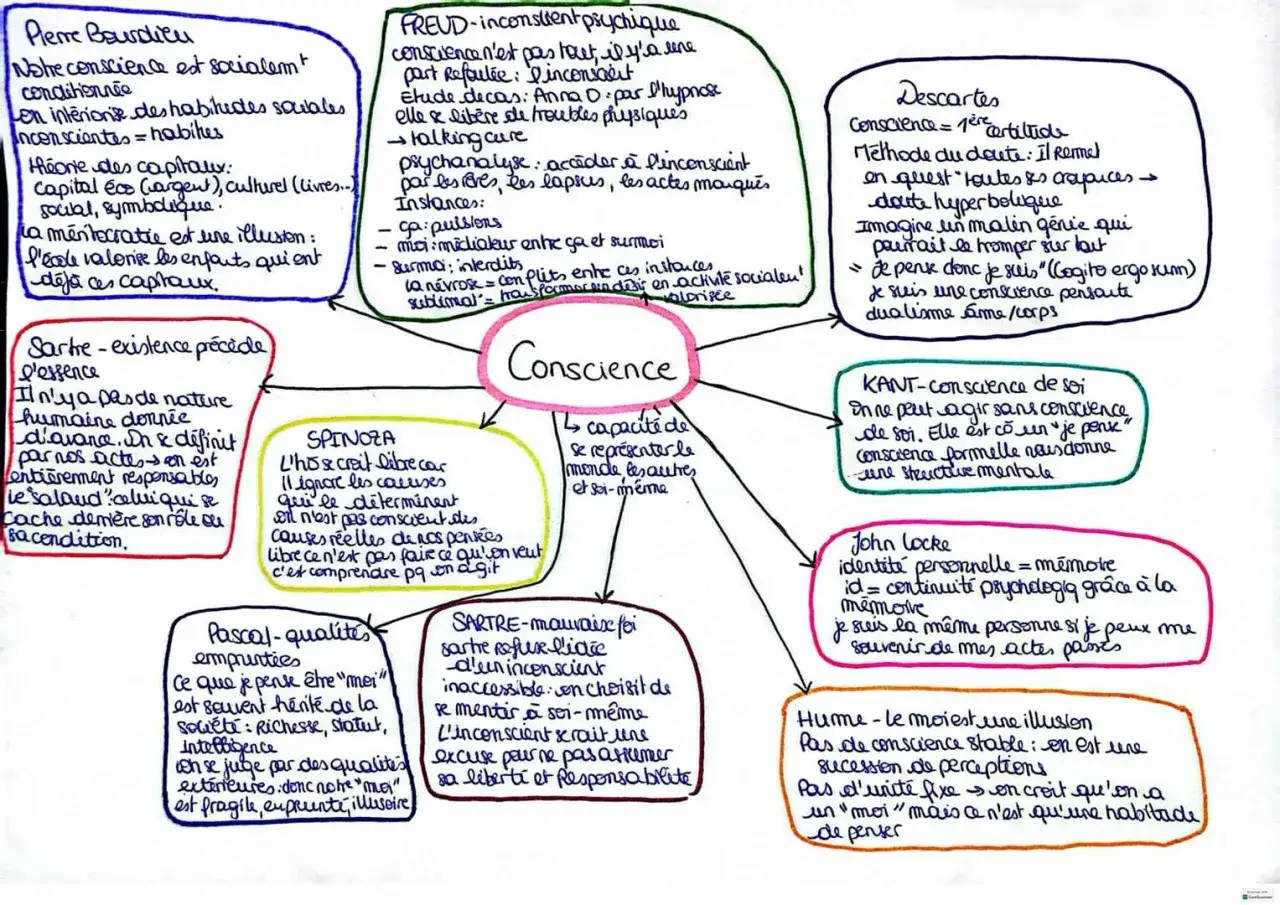 Pierre Bourdieu
Notre conscience est socialemt
conditionnée
on intériorise des habitudes sociales
inconscientes = habitus
théorie des capitaux:
capital éco (argent), culturel (livres...)
social, symbolique.
la méritocratie est une illusion:
l'école valorise les enfants qui ont
déjà ces capitaux.
FREUD-inconscient psychique
conscience n'est pas tout, il y'a une
part refoulée: l'inconscient
Etude de cas: Anna O: par l'hypnose
elle se libère de troubles physiques
→ talking cure
psychanalyse: accéder à l'inconscient
par les rêves, les lapsus, les actes manqués
Instances:
- ça: pulsions
- moi: médiateur entre ça et surmoi
- surmoi: interdits
la névrose = conflits entre ces instances
sublimat° = transformer un désir en activité socialemt
valorisée
Descartes
Conscience = 1ère certitude
Méthode du doute: Il remet
en quest° toutes ses croyances →
doute hyperbolique
Imagine un malin génie qui
pourrait le tromper sur tout
"je pense donc je suis" (Cogito ergo sum)
je suis une conscience pensante
dualisme âme/corps
Conscience
↳ capacité de
se représenter le
monde les autres
et soi-même
Sartre - existence précède
l'essence
Il n'y a pas de nature
humaine donnée
d'avance. On se définit
par nos actes → on est
entièrement responsables
le "salaud": celui qui se
cache derrière son rôle ou
sa condition.
KANT-conscience de soi
On ne peut agir sans conscience
de soi. Elle est cô un "je pense"
conscience formelle nous donne
une structure mentale
SPINOZA
L'hô se croit libre car
il ignore les causes
qui le déterminent
on n'est pas conscient des
causes réelles de nos pensées
libre ce n'est pas faire ce qu'on veut
c'est comprendre pq on agit
John Locke
identité personnelle = mémoire
id = continuité psychologiq grâce à la
mémoire
je suis la même personne si je peux me
souvenir de mes actes passés
Pascal-qualités
empruntées
ce que je pense être "moi"
est souvent hérité de la
société: richesse, statut,
intelligence
on se juge par des qualités
extérieures: donc notre "moi"
est fragile, emprunté, illusoire
SARTRE-mauvaise foi
sartre refuse l'idée
d'un inconscient
inaccessible: on choisit de
se mentir à soi-même
L'inconscient serait une
excuse pour ne pas assumer
sa liberté et Responsabilité
Hume - le moi est une illusion
Pas de conscience stable: on est une
sucession de perceptions
Pas d'unité fixe → on croit qu'on a
un "moi" mais ce n'est qu'une habitude
de penser
CamScanner